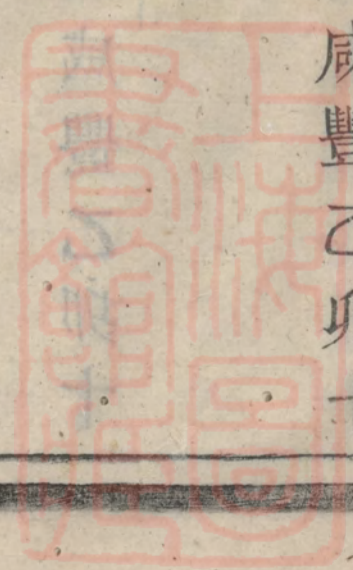 咸豐乙卯
上海圖
書館藏